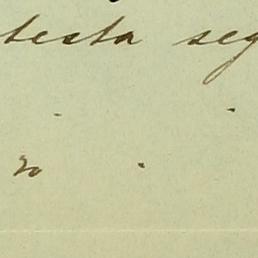 testa seg